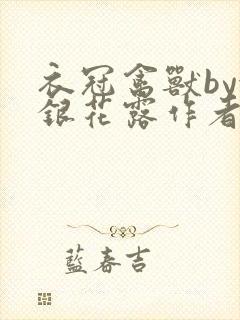 衣冠禽獸by
銀花露作者
藍春吉